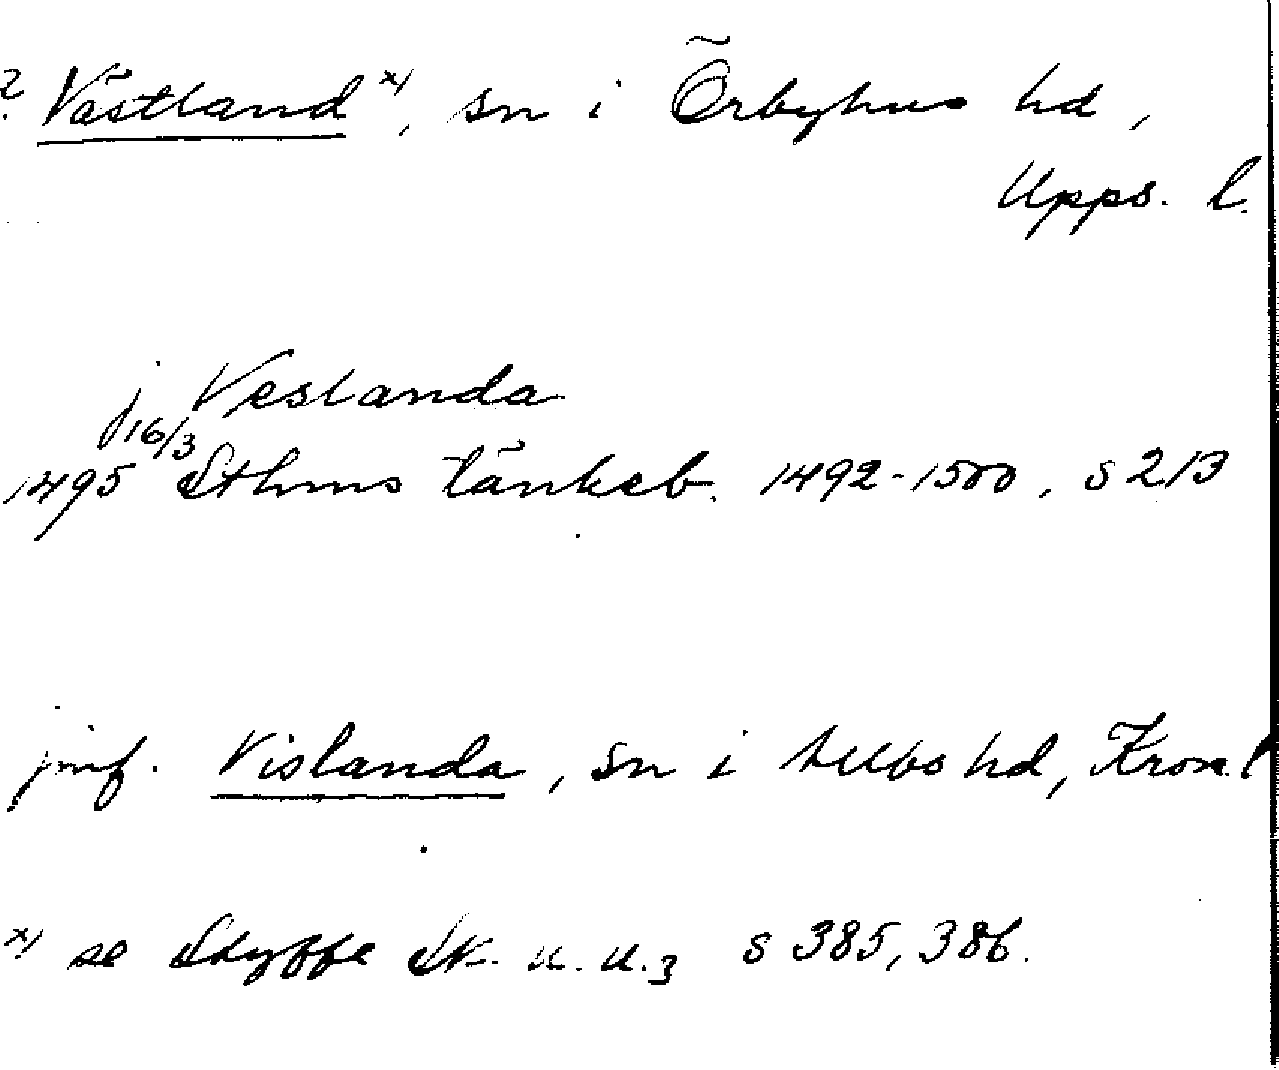 ? Västland x), sn i Örbyhus hd,
Upps. l.
j Veslanda
1495 16/3 Sthms tänkeb. 1492-1500, s 213
jmf. Vislanda, sn i Allbo hd, Kron. l
x) se Styffe Sk. u. u.3 s 385, 386.